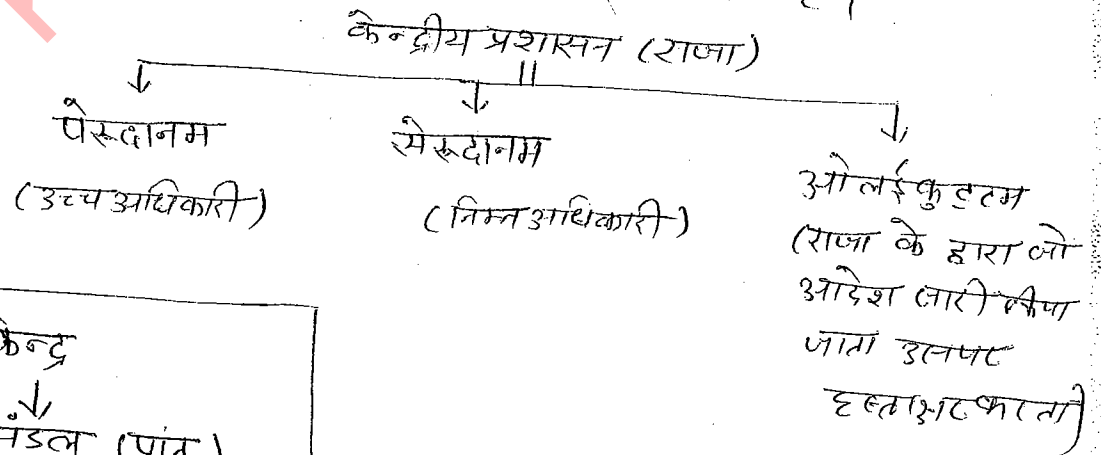 केन्द्रीय प्रशासन (राजा)
पेरूदानम
(उच्च अधिकारी)
सेरूदानम
(निम्न अधिकारी)
ओलईकुट्टम
(राजा के द्वारा जो
आदेश जारी किया
जाता उसपर
हस्ताक्षर करता)
केन्द्र
मंडल (प्रांत)